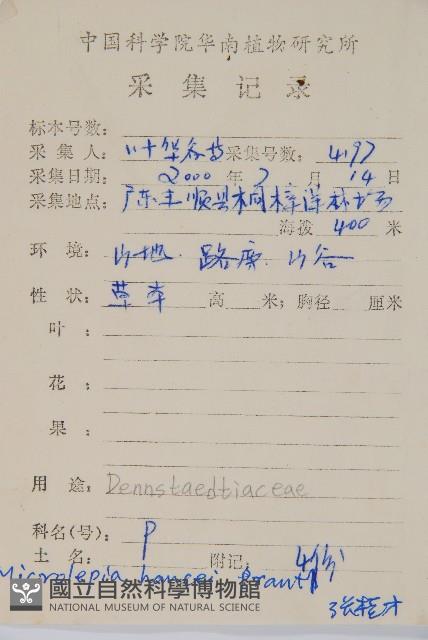 中国科学院华南植物研究所
采集记录
标本号数:
采集人: 叶华谷 采集号数: 4197
采集日期: 2000年7月14日
采集地点: 广东丰顺县桐梓洋林场
海拨 400 米
环境: 山地. 路旁. 山谷
性状: 草本 高 米; 胸径 厘米
叶:
花:
果:
用途: Dennstaedtiaceae
科名(号): P
土名: 附记: 4份
Microlepia hancei Prantl
張桂才
國立自然科學博物館
NATIONAL MUSEUM OF NATURAL SCIENCE